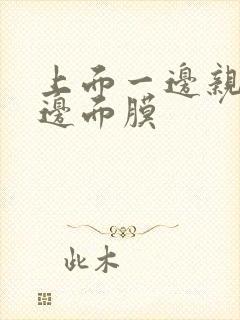 上而一邊親
邊而膜
此木